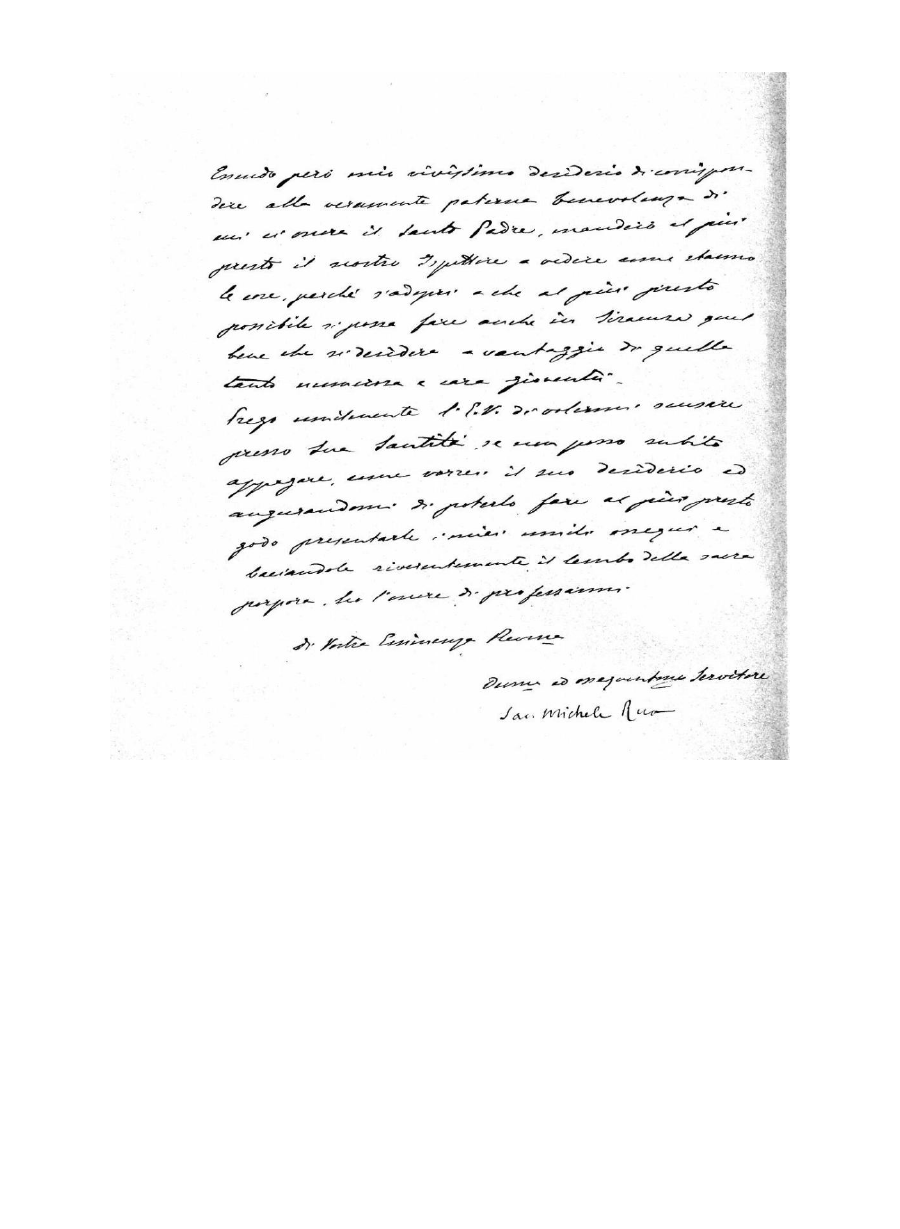 Essendo però mio vivissimo desiderio di corrispon-
dere alla veramente paterna benevolenza di
cui ci onora il Santo Padre, manderò al più
presto il nostro Ispettore a vedere come stanno
le cose, perché s'adopri a che al più presto
possibile si possa fare anche in Siracusa quel
bene che si desidera a vantaggio di quella
tanto numerosa e cara gioventù.
Prego umilmente l'E.V. di volermi scusare
presso Sua Santità se non posso subito
appagare, come vorrei il suo desiderio ed
augurandomi di poterlo fare al più presto
godo presentarle i miei umili ossequi e
baciandole riverentemente il lembo della sacra
porpora, ho l'onore di professarmi
di Vostra Eminenza Revma
Dvmo ed ossequentmo Servitore
Sac. Michele Rua